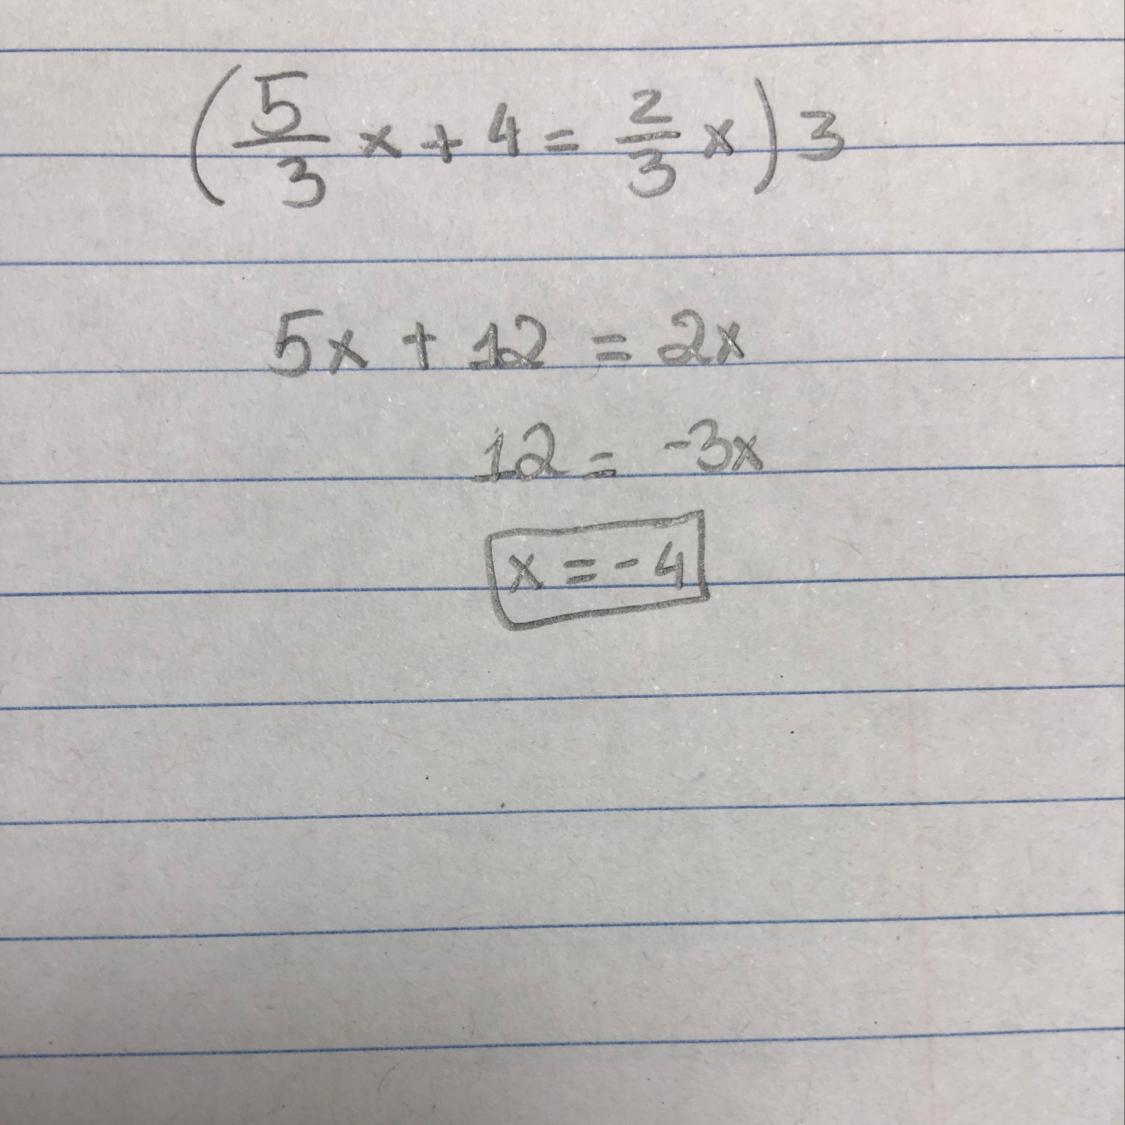 (5/3 x + 4 = 2/3 x) 3
5x + 12 = 2x
12 = -3x
x = -4